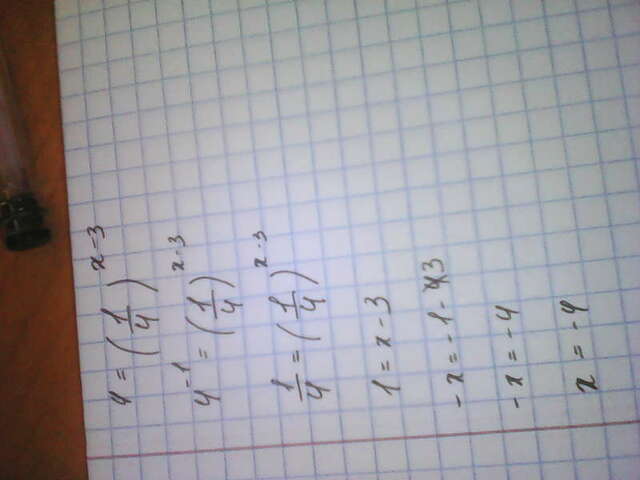 4 = (1/4)^x-3
4^-1 = (1/4)^x-3
1/4 = (1/4)^x-3
1 = x - 3
-x = -1 - 3
-x = -4
x = -4